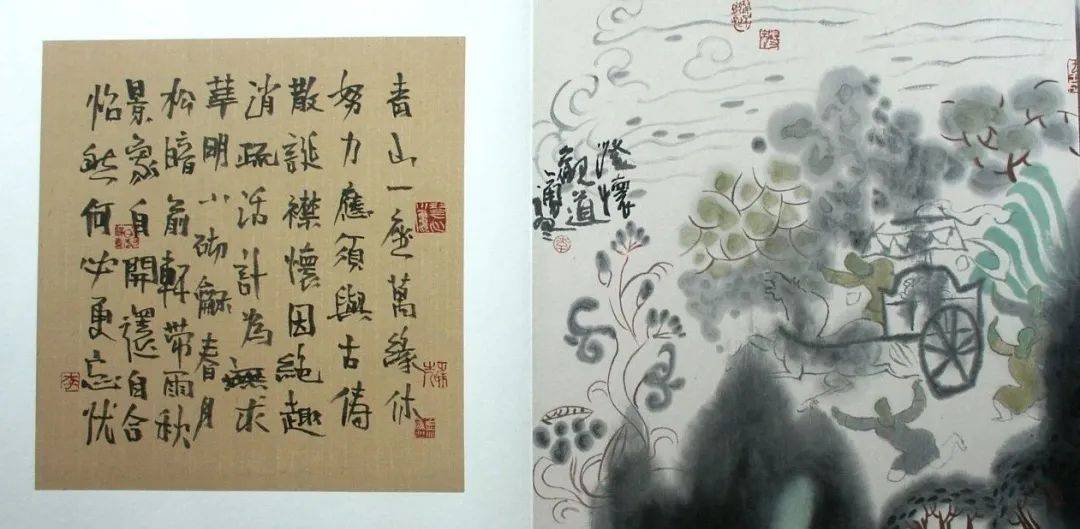 青山一座萬緣休
努力應須與古儔
散誕襟懷因絕趣
消疏活計為無求
華明小砌龢春月
松暗前軒帶雨秋
景象自開還自合
怡然何必更忘忧
澄懷
觀道